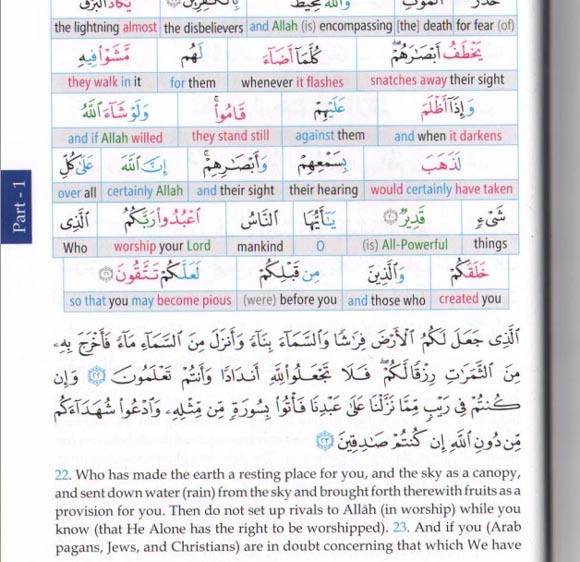 the lightning almost the disbelievers and Allah (is) encompassing [the] death for fear (of)
يَخْطَفُ أَبْصَٰرَهُمْ ۖ كُلَّمَآ أَضَآءَ لَهُم مَّشَوْا۟ فِيهِ
they walk in it for them whenever it flashes snatches away their sight
وَإِذَآ أَظْلَمَ عَلَيْهِمْ قَامُوا۟ ۚ وَلَوْ شَآءَ ٱللَّهُ
and if Allah willed they stand still against them and when it darkens
لَذَهَبَ بِسَمْعِهِمْ وَأَبْصَٰرِهِمْ ۚ إِنَّ ٱللَّهَ عَلَىٰ كُلِّ
over all certainly Allah and their sight their hearing would certainly have taken
Part - 1
شَىْءٍ قَدِيرٌ ٢٠ يَٰٓأَيُّهَا ٱلنَّاسُ ٱعْبُدُوا۟ رَبَّكُمُ ٱلَّذِى
Who worship your Lord mankind O (is) All-Powerful things
خَلَقَكُمْ وَٱلَّذِينَ مِن قَبْلِكُمْ لَعَلَّكُمْ تَتَّقُونَ ٢١
so that you may become pious (were) before you and those who created you
ٱلَّذِى جَعَلَ لَكُمُ ٱلْأَرْضَ فِرَٰشًا وَٱلسَّمَآءَ بِنَآءً وَأَنزَلَ مِنَ ٱلسَّمَآءِ مَآءً فَأَخْرَجَ بِهِۦ
مِنَ ٱلثَّمَرَٰتِ رِزْقًا لَّكُمْ ۖ فَلَا تَجْعَلُوا۟ لِلَّهِ أَندَادًا وَأَنتُمْ تَعْلَمُونَ ٢٢ وَإِن
كُنتُمْ فِى رَيْبٍ مِّمَّا نَزَّلْنَا عَلَىٰ عَبْدِنَا فَأْتُوا۟ بِسُورَةٍ مِّن مِّثْلِهِۦ وَٱدْعُوا۟ شُهَدَآءَكُم
مِّن دُونِ ٱللَّهِ إِن كُنتُمْ صَٰدِقِينَ ٢٣
22. Who has made the earth a resting place for you, and the sky as a canopy,
and sent down water (rain) from the sky and brought forth therewith fruits as a
provision for you. Then do not set up rivals to Allâh (in worship) while you
know (that He Alone has the right to be worshipped). 23. And if you (Arab
pagans, Jews, and Christians) are in doubt concerning that which We have